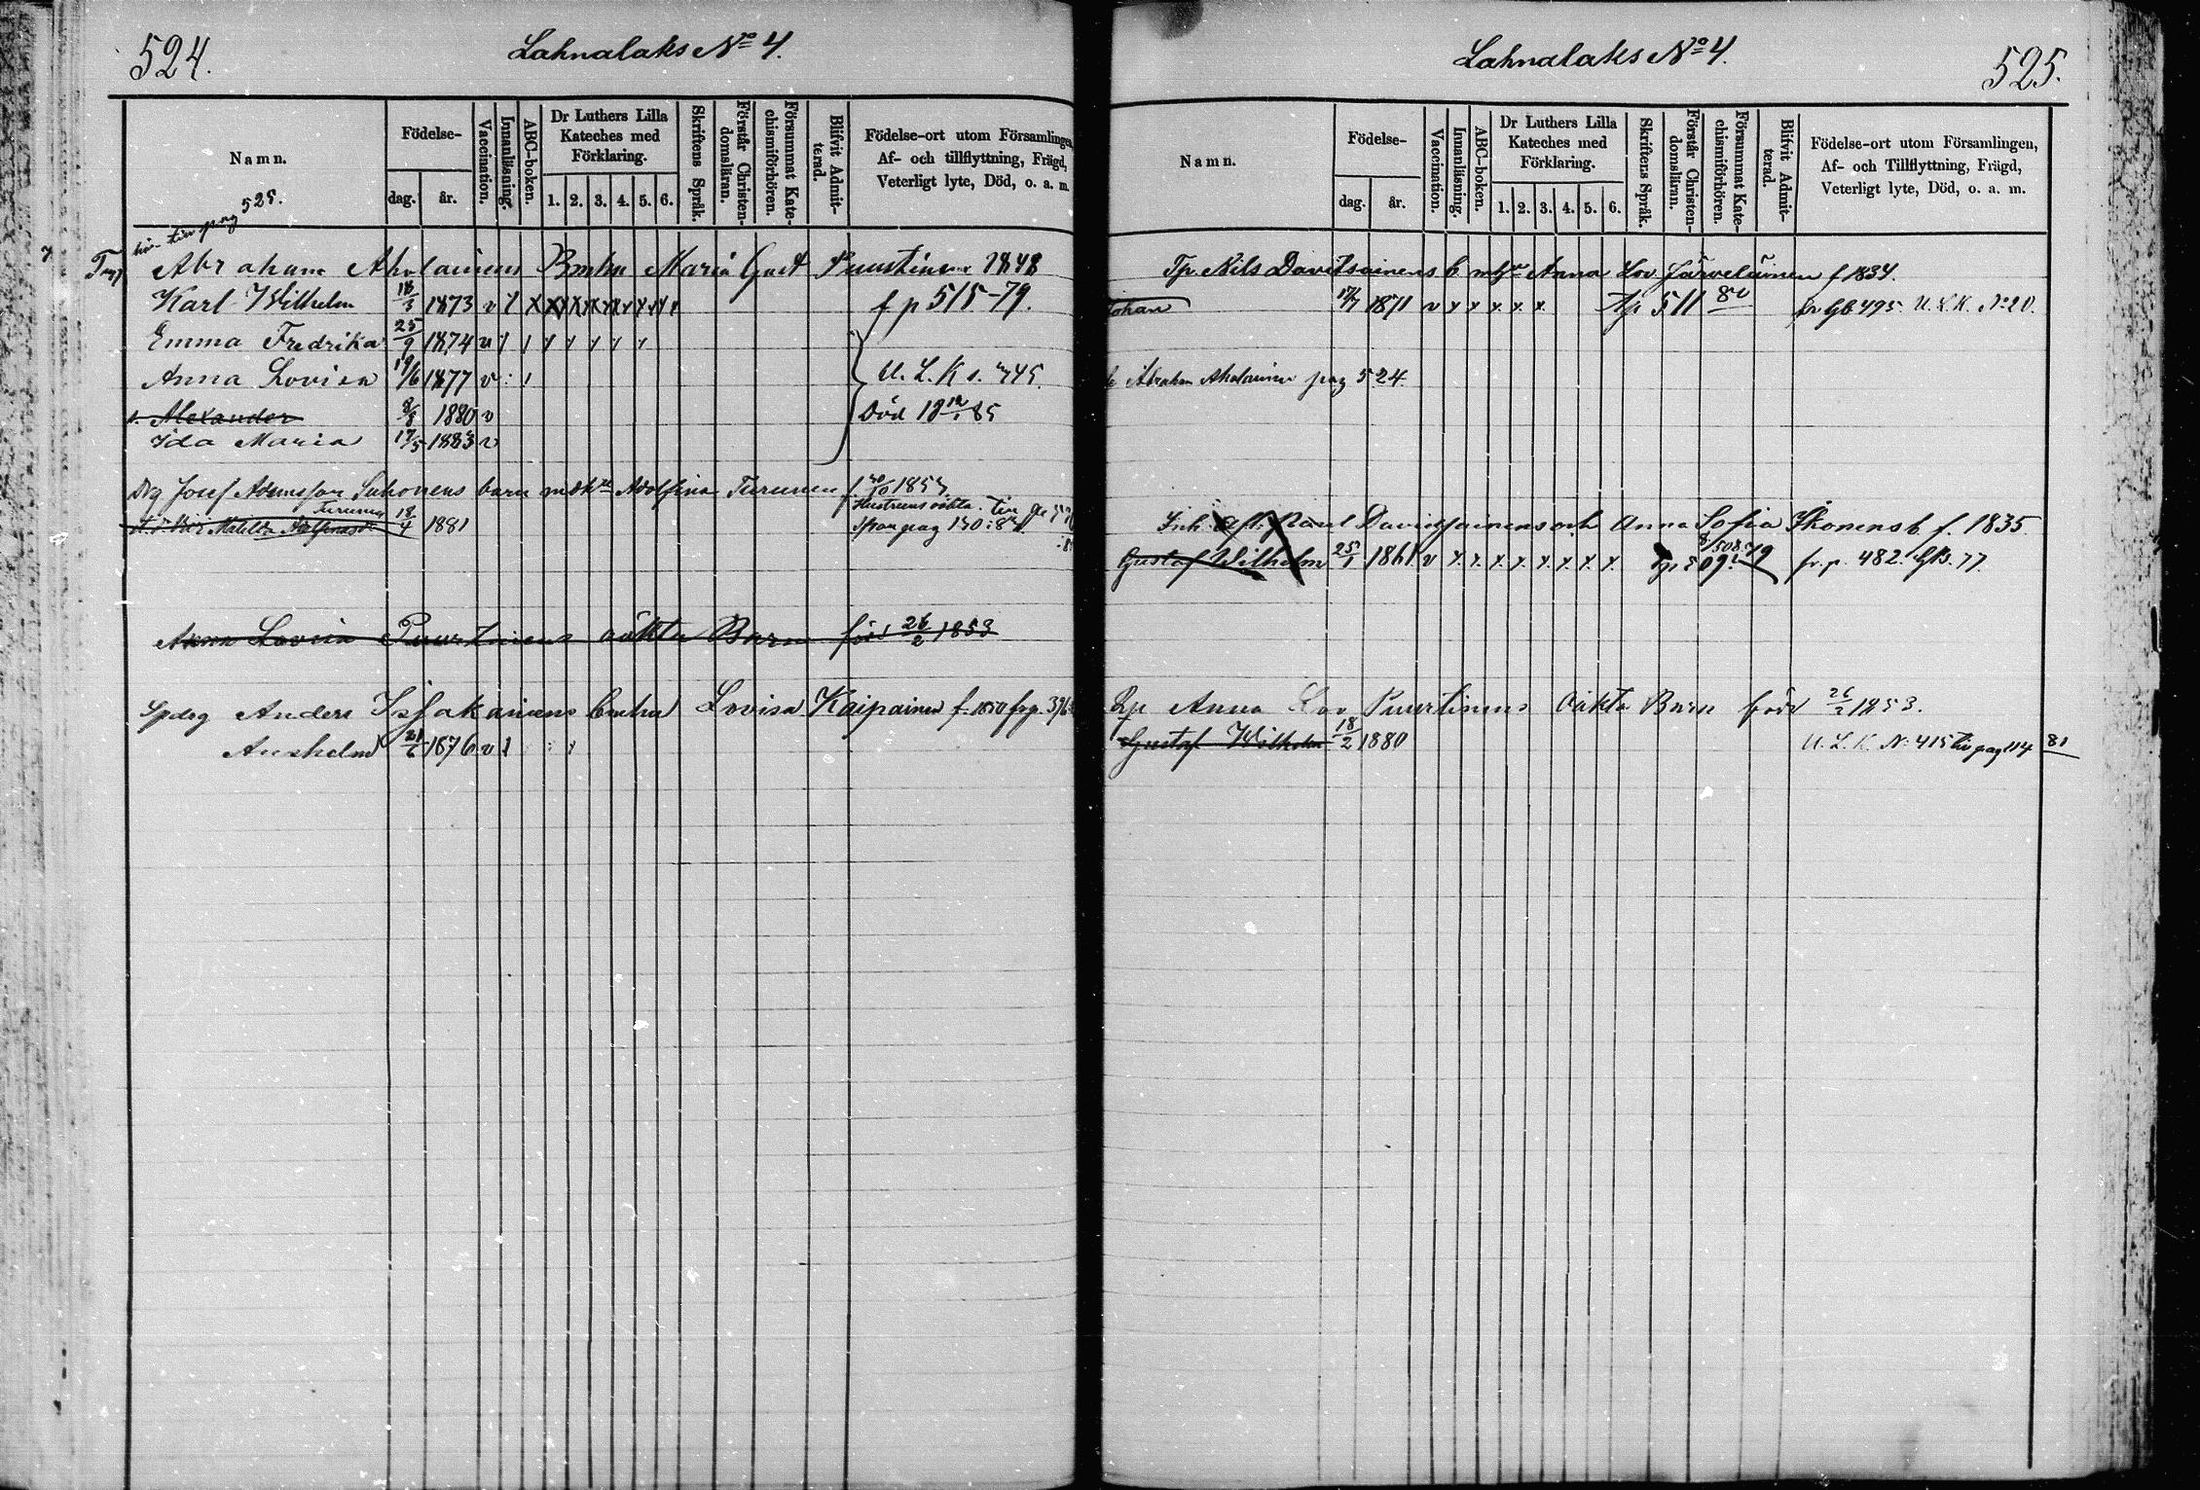 524.
Lahnalaks No 4.
Namn.
Födelse-
dag.
år.
Vaccination.
Innanläsning.
ABC-boken.
Dr Luthers Lilla
Kateches med
Förklaring.
1. 2. 3. 4. 5. 6.
Skriftens Språk.
Förstår Christen-
domsläran.
Försummat Kate-
chismiförhören.
Blifvit Admit-
terad.
Födelse-ort utom Församlingen,
Af- och tillflyttning, Frägd,
Veterligt lyte, Död, o. a. m.
pag 525.
Abraham Aholainens Maria Gust Puustinen 1848
Karl Wilhelm 18/3 1873 v f p 515-79.
Emma Fredrika 25/9 1874 v
Anna Lovisa 19/6 1877 v U. L. K s. 745.
Alexander 8/8 1880 v Död 18 12/1 85
Ida Maria 17/5 1883 v
Drg Josef Adamsson Suhonens barn Adolfina Turunen f 1853
Turunen Hustruns oäkta.
Matilda 18/4 1881 pag 130:
Anna Lovisa Puurtinens oäkta Barn född 26/2 1853
Spdrg Anders Isakainens Lovisa Kaipainen f. 1850 frp. 396
Anshelm 21/6 1876 v
Lahnalaks No 4.
525.
Namn.
Födelse-
dag.
år.
Vaccination.
Innanläsning.
ABC-boken.
Dr Luthers Lilla
Kateches med
Förklaring.
1. 2. 3. 4. 5. 6.
Skriftens Språk.
Förstår Christen-
domsläran.
Försummat Kate-
chismiförhören.
Blifvit Admit-
terad.
Födelse-ort utom Församlingen,
Af- och Tillflyttning, Frägd,
Veterligt lyte, Död, o. a. m.
Tp. Nils Davidsainens b m hu Anna Lov Järveläinen f 1834.
Johan 17/7 1871 v x x x x x Tp 511 80 fr Gb 495. U. L. K. No 20.
Abraham Aholainen pag 524.
Paul Davidsainens och Anna Sofia Ikonens b. f. 1835
Gustaf Wilhelm 25/1 1861 v x x x x x x x x 508 79 fr. p. 482. Gb. 77.
Anna Lov Puurtinens Oäkta Barn född 26/2 1853.
Gustaf Wilhelm 18/2 1880 U. L. K. No 415 pag 114 81